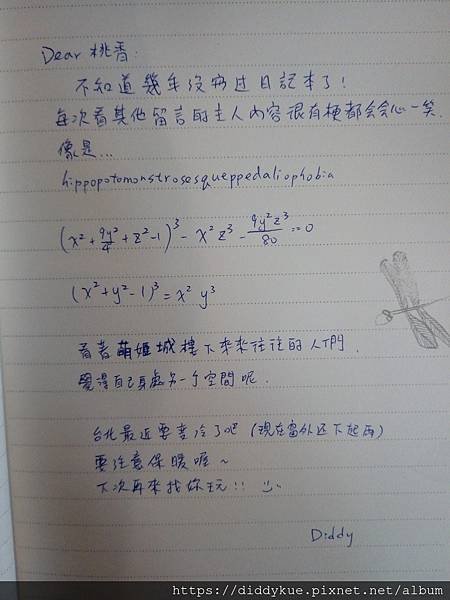 Dear 桃香:
不知道幾年沒寫过日記本了!
每次看其他留言的主人內容很有梗都会会心一笑.
像是...
hippopotomonstrosesqueppedaliophobia
(x²+9y²/4+z²-1)³-x²z³-9y²z³/80=0
(x²+y²-1)³=x²y³
看著萌姬城樓下來來往往的人們.
覺得自己身處另一个空間呢.
台北最近要变冷了吧(現在窗外还下起雨)
要注意保暖喔~
下次再來找妳玩!!
Diddy
https://diddykue.pixnet.net/album